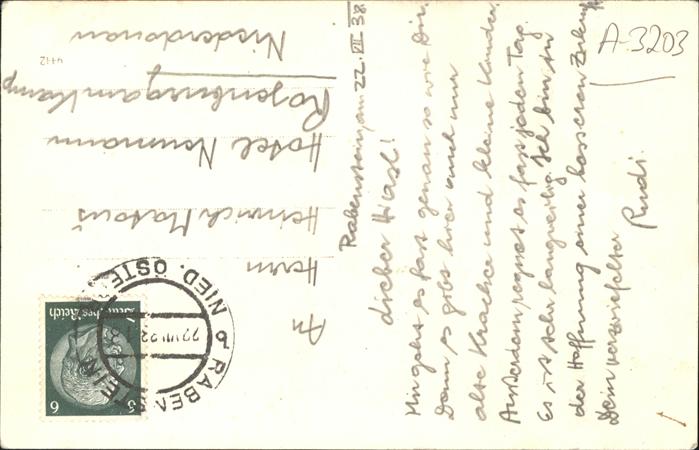 Rabenstein, am 22. VII 38.
Lieber Hiasl!
Mir gehts es fast genau so wie Dir.
Denn es gibt hier auch nur
alte Krachee und kleine Kinder.
Außerdem regnet es fast jeden Tag.
Es ist sehr langweilig. Ich bin in
der Hoffnung einer besseren Zukunft
Dein verzweifelter
Rudi.
A-3203
An
Herrn
Heinrich Matouš
Hotel Neumann
Rosenburg am Kamp
Niederdonau
4412
Deutsches Reich
6 6
NIED. ÖSTE
RABENSTEIN
22.VII